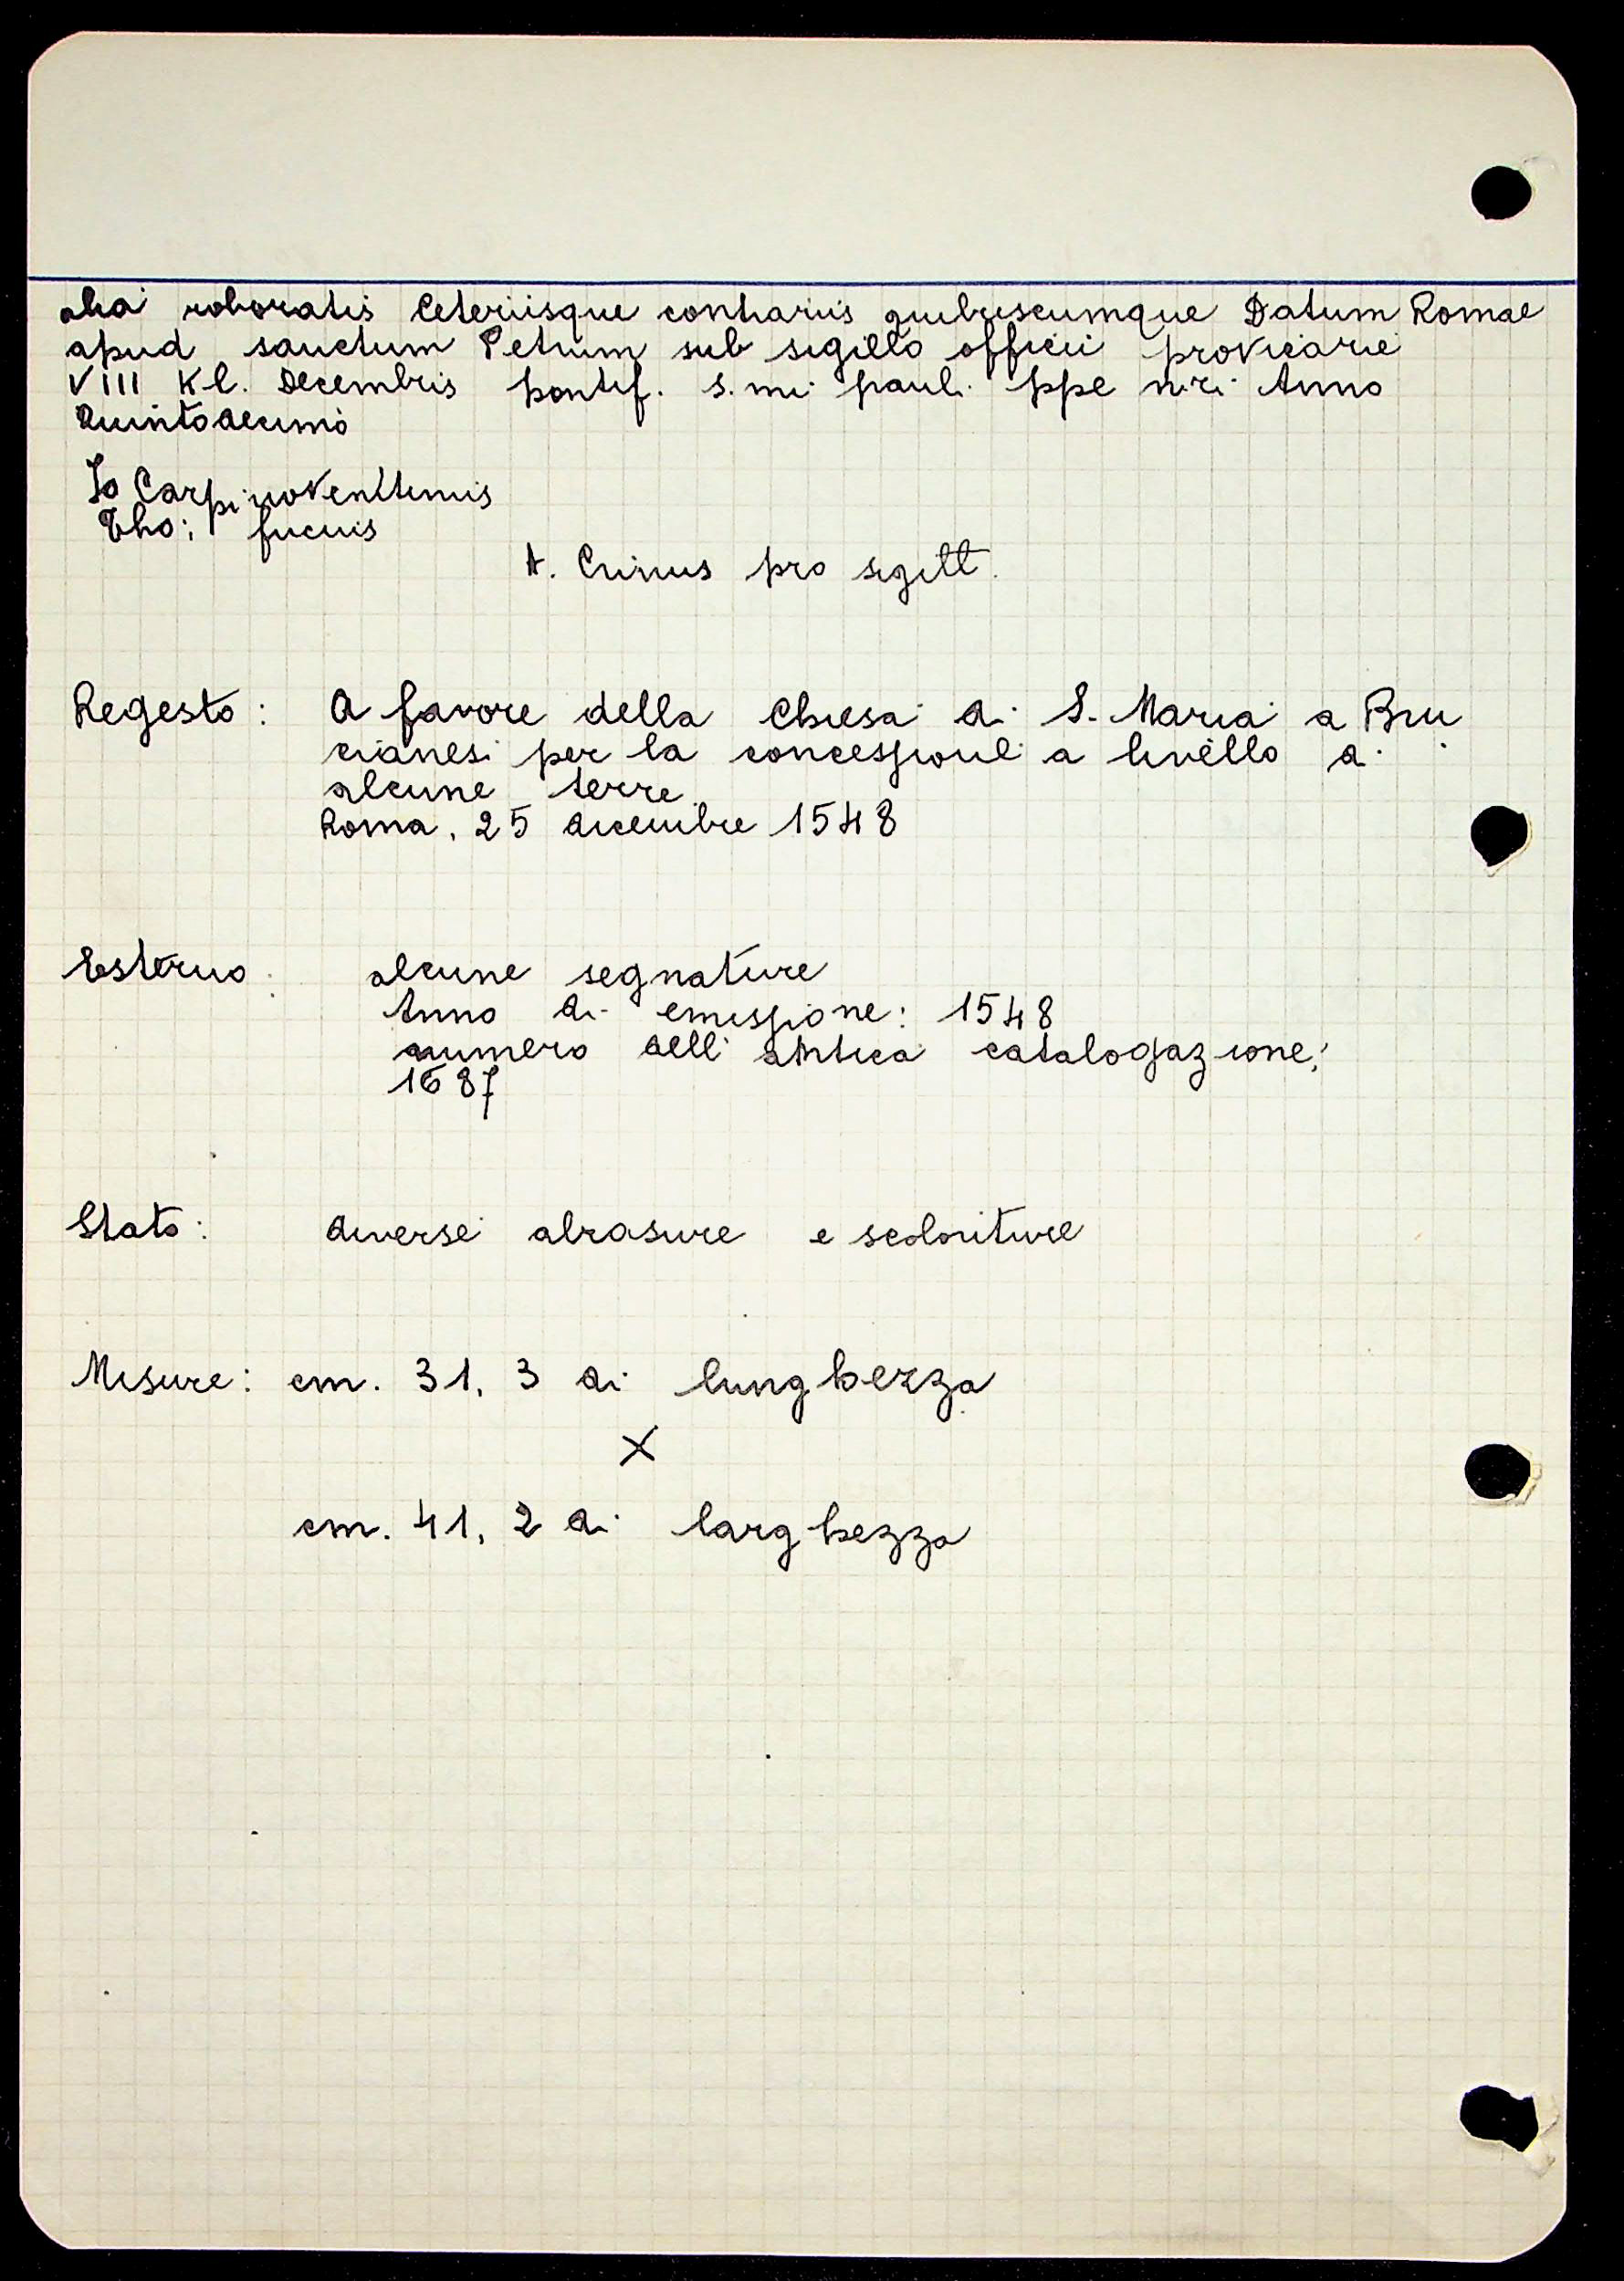 alia roboratis Ceteriisque contrariis quibuscumque Datum Romae
apud sanctum Petrum sub sigillo officii provicarie
VIII Kl. Decembris pontif. s.mi pauli ppe n.ri Anno
Quintodecimo
Io Carpi
Tho: fucuis
A. Crinus pro sigill.
Regesto: A favore della Chiesa di S. Maria a Bru
cianesi per la concessione a livello di
alcune terre.
Roma, 25 dicembre 1548
Esterno: alcune segnature
Anno di emissione: 1548
numero dell'antica catalogazione:
1687
Stato: diverse abrasure e scoloriture
Misure: cm. 31,3 di lunghezza
X
cm. 41,2 di larghezza